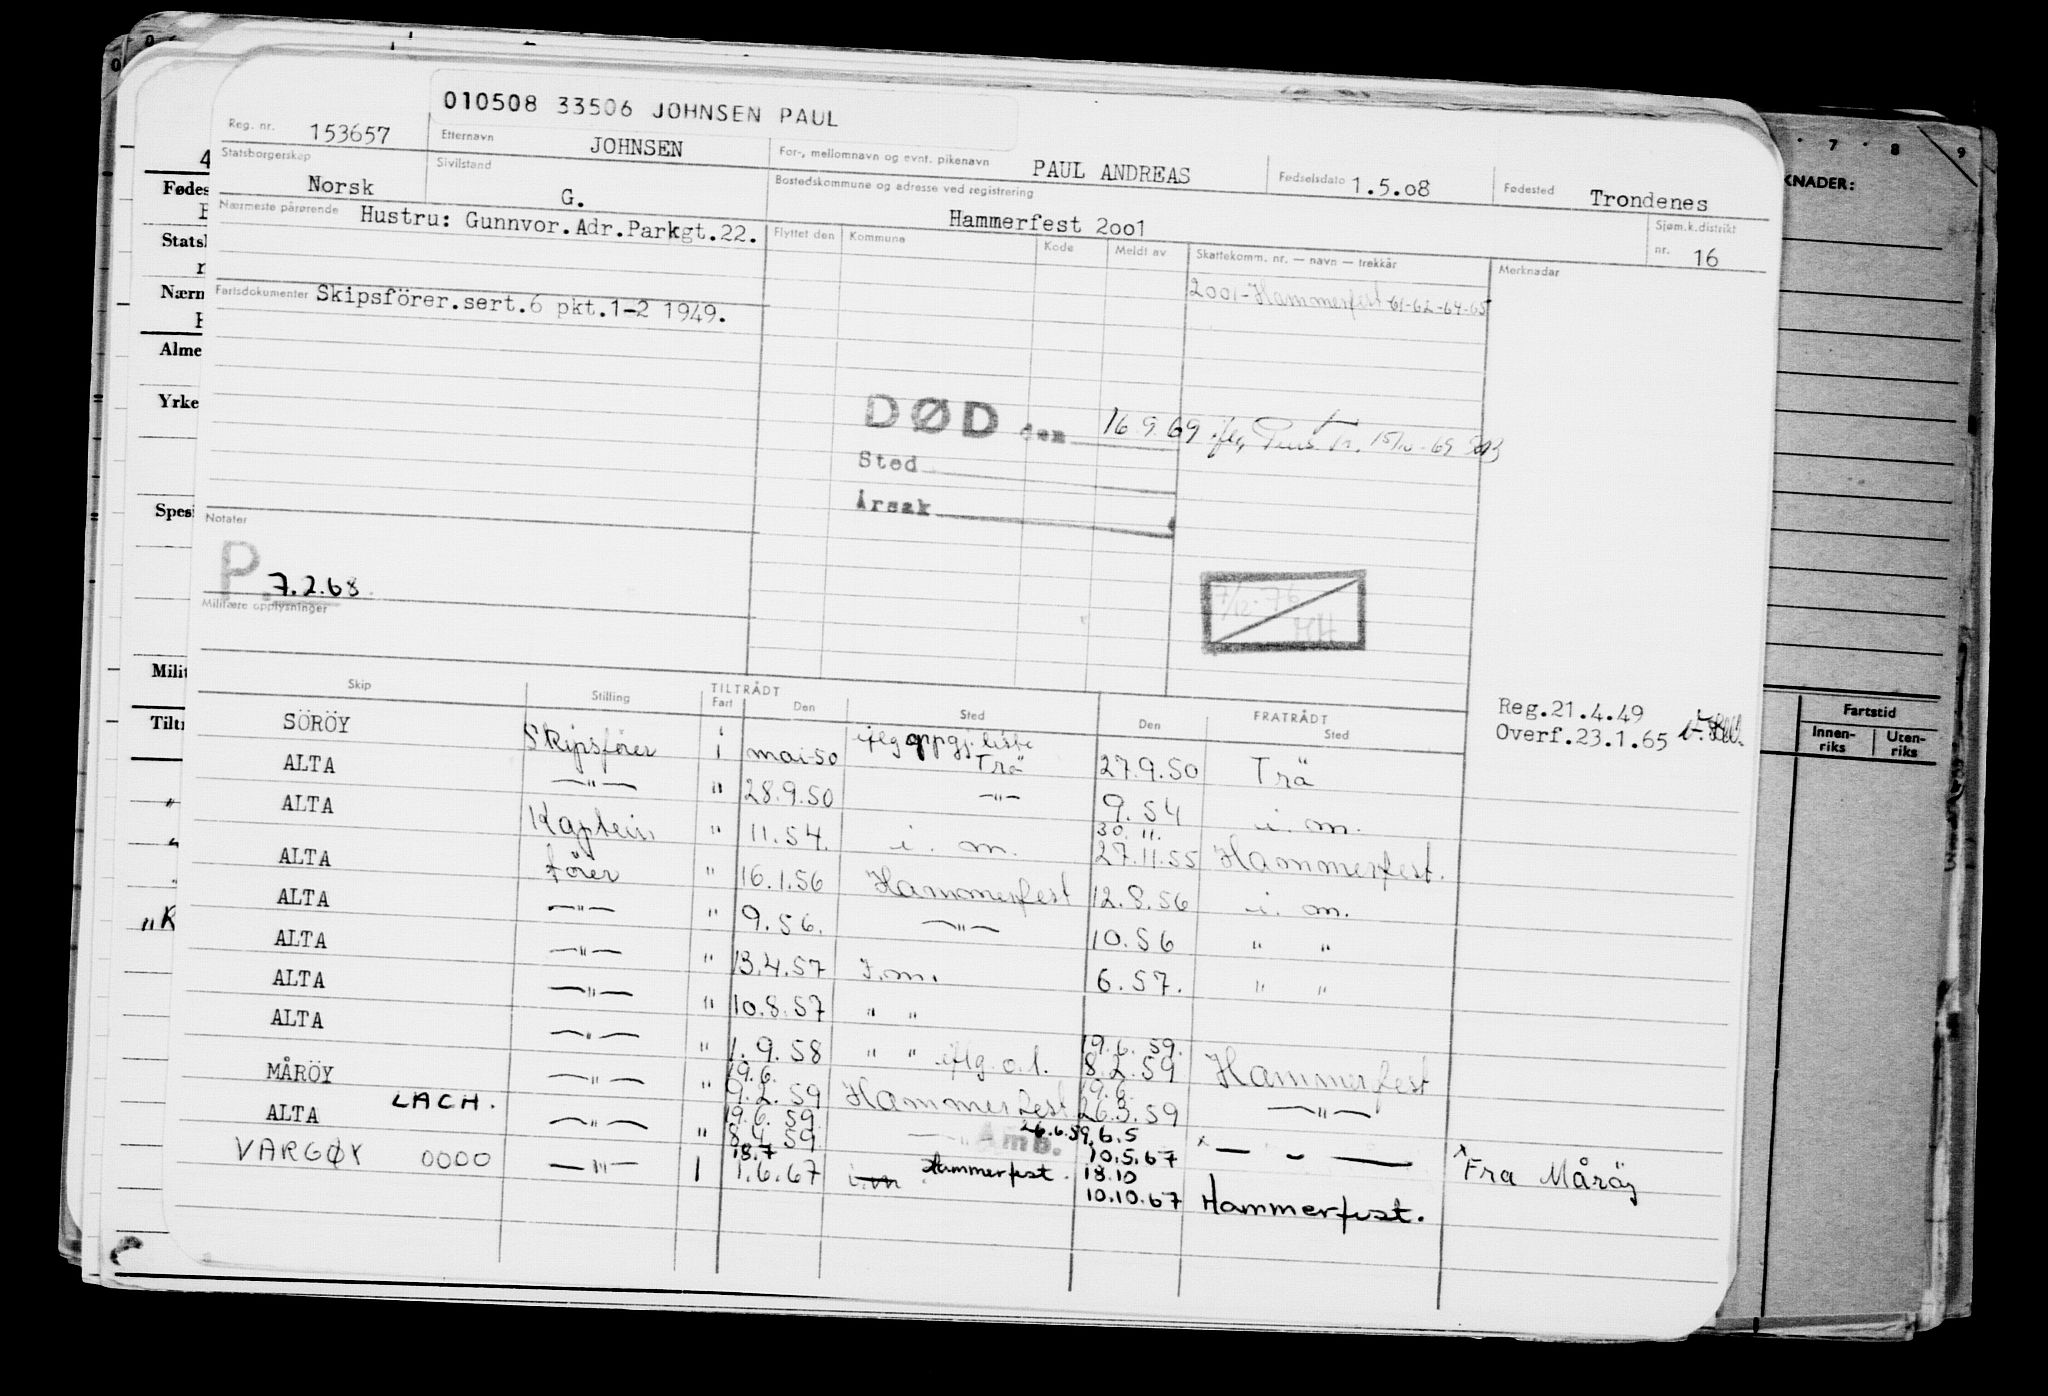 010508 33506 JOHNSEN PAUL
Reg. nr. 153657 Etternavn JOHNSEN For-, mellomnavn og evnt. pikenavn PAUL ANDREAS Fødselsdato 1.5.08 Fødested Trondenes
Statsborgerskap Norsk Sivilstand G. Bostedskommune og adresse ved registrering Hammerfest 2001 Sjøm.k.distrikt nr. 16
Nærmeste pårørende Hustru: Gunnvor.Adr.Parkgt.22. Flyttet den Kommune Kode Meldt av Skattekomm. nr. — navn — trekkår Merknader
2001-Hammerfest 61-62-64-65
Fartsdokumenter Skipsförer.sert.6 pkt.1-2 1949.
DØD den 16.9.69
Sted
Årsak
Notater
P. 7.2.68
Militære opplysninger
7/12-76
HH
Reg.21.4.49
Overf.23.1.65
Skip Stilling TILTRÅDT Fart Den Sted FRATRÅDT Den Sted
SÖRÖY Skipsförer i mai-50 iflg oppgj. liste Trä 27.9.50 Trä
ALTA —"— " 28.9.50 —"— 9.54 i. m.
ALTA Kaptein " 11.54. i. m. 30.11. 27.11.55 Hammerfest.
ALTA förer " 16.1.56 Hammerfest 12.8.56 i. m.
ALTA —"— " 9.56. —"— 10.56 " "
ALTA —"— " 13.4.57 I.m. 6.57. " "
ALTA —"— " 10.8.57 " "
ALTA —"— " 1.9.58 " " iflg.o.l. 19.6.59. 8.2.59 Hammerfest
MÅRÖY —"— " 19.6. 9.2.59 Hammerfest 19.6. 26.3.59 —"—
ALTA LACH. —"— " 19.6.59. 8.4.59 —"— Amb. 26.6.59, 6.5 10.5.67 x — — — x Fra Måröy
VARGØY 0000 —"— 1 18.7 1.6.67 i.m Hammerfest. 18.10 10.10.67 Hammerfest.
4
Fødes
Statsl
Nærn
Alme
Yrke
Spesi
Milit
Tiltr
"K
7 8 9
KNADER:
Fartstid
Innen-riks Uten-riks